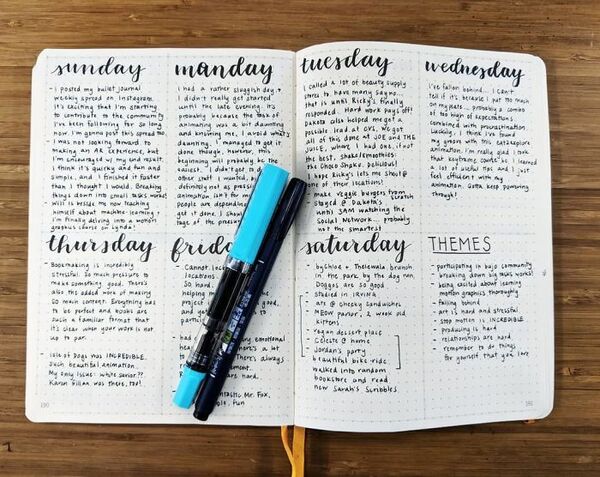 sunday
- I posted my bullet journal
weekly spread on Instagram.
It's exciting that I'm starting
to contribute to the community
I've been following for so long
now. I'm gonna post this spread too.
- I was not looking forward to
making an AR experience, but
I'm encouraged w/ my end result.
I think it's quirky and fun and
simple, and I finished it faster
than I thought I would. Breaking
things down into small tasks works!
- Will is beside me now teaching
himself about machine-learning &
I'm finally delving into a motion
graphics course on Lynda!
monday
I had a rather sluggish day &
I didn't really get started
until the late evening. It's
probably because the task of
animating was a bit daunting
and knowing me, I avoid what's
daunting. I managed to get it
done though, however, this
beginning will probably be the
easiest. I didn't get to do
other stuff I wanted, but
definitely not as precise
animation isn't for me
people are depending
get it done. I should
tage of the present
tuesday
I called a lot of beauty supply
stores to have many say no...
that is until Ricky's finally
responded. Hard work pays off!
Dakota also helped me get a
possible lead at CVS. We got
all of this done at JOE AND THE
JUICE, where I had one, if not
the best, shake/smoothies:
the Choco Shake. Delicious!
I hope Ricky's lets me shoot @
one of their locations!
- make veggie burgers from scratch
- stayed @ Dakota's
until 3AM watching the
Social Network... probably
not the smartest
wednesday
I've fallen behind... I can't
tell if it's because I put too much
on my plate... probably a combo
of too high of expectations
combined with procrastination.
Luckily, I think I've found
my groove with this cataexplore
animation. I'm really glad I took
that keyframe course bc I learned
a lot of useful tips and I just
feel efficient with my
animation. Gotta keep powering
through!
thursday
- Bookmaking is incredibly
stressful. So much pressure to
make something good. There's
also the added work of making
so much content. Everything has
to be perfect and books are
such a familiar format that
it's clear when your work is not
up to par.
Isle of Dogs was INCREDIBLE.
Such beautiful animation.
My only issue: white savior??
Kara Hilian was there, too!
friday
- Cannot
locations
So hard.
helping
project
the pro
hard t
and
having emotional
here's a lot
There's always
ement.
are hard.
antastic Mr. Fox,
fun
saturday
- by Chloe + Thelewala brunch
in the park by the dog run
Doggos are so good
- studied in IRVING
- ate @ cheeky sandwiches
- MEOW parlor, 2 week old
kittens
- vegan dessert place
- celeste @ home
Jordan's party
beautiful bike ride
walked into random
bookstore and read
new Sarah's Scribbles
THEMES
- participating in bujo community
- breaking down big tasks works!
- being excited about learning
motion graphics thoroughly
- falling behind
- art is hard and stressful
- stop motion is INCREDIBLE
- producing is hard
- relationships are hard
- remember to do things
for yourself that you love
190
191